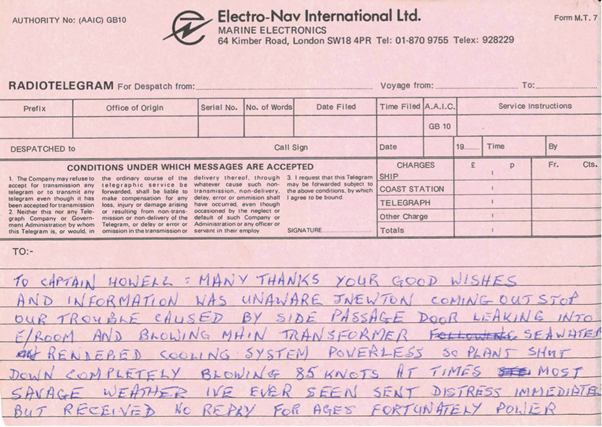 AUTHORITY No: (AAIC) GB10
Electro-Nav International Ltd.
MARINE ELECTRONICS
64 Kimber Road, London SW18 4PR Tel: 01-870 9755 Telex: 928229
Form M.T. 7
RADIOTELEGRAM For Despatch from: Voyage from: To:
Prefix Office of Origin Serial No. No. of Words Date Filed Time Filed A.A.I.C. Service Instructions
GB 10
DESPATCHED to Call Sign Date 19 Time By
CONDITIONS UNDER WHICH MESSAGES ARE ACCEPTED
1. The Company may refuse to
accept for transmission any
telegram or to transmit any
telegram even though it has
been accepted for transmission
2. Neither this nor any Tele-
graph Company or Govern-
ment Administration by whom
this Telegram is, or would, in
the ordinary course of the
telegraphic service be
forwarded, shall be liable to
make compensation for any
loss, injury or damage arising
or resulting from non-trans-
mission or non-delivery of the
Telegram, or delay or error or
omission in the transmission or
delivery thereof, through
whatever cause such non-
transmission, non-delivery,
delay, error or ommision shall
have occurred, even though
occasioned by the neglect or
default of such Company or
Administration or any officer or
servant in their employ
3. I request that this Telegram
may be forwarded subject to
the above conditions, by which
I agree to be bound.
SIGNATURE
CHARGES £ p Fr. Cts.
SHIP
COAST STATION
TELEGRAPH
Other Charge
Totals
TO:-
TO CAPTAIN HOWELL = MANY THANKS YOUR GOOD WISHES
AND INFORMATION WAS UNAWARE JNEWTON COMING OUT STOP
OUR TROUBLE CAUSED BY SIDE PASSAGE DOOR LEAKING INTO
E/ROOM AND BLOWING MAIN TRANSFORMER FOLLOWING SEAWATER
RENDERED COOLING SYSTEM POWERLESS SO PLANT SHUT
DOWN COMPLETELY BLOWING 85 KNOTS AT TIMES MOST
SAVAGE WEATHER IVE EVER SEEN SENT DISTRESS IMMEDIATE
BUT RECEIVED NO REPLY FOR AGES FORTUNATELY POWER